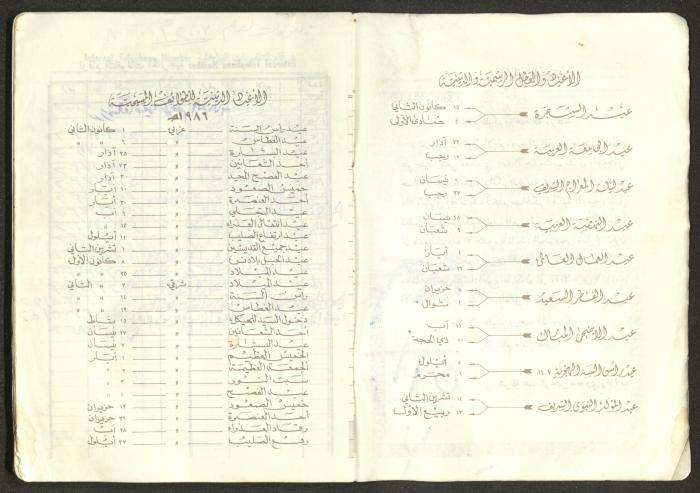 الأعياد والعطل الرسمية والدينية
١٥ كانون الثاني
عيد الشجرة
جمادى الأولى
٢٢ آذار
عيد الجامعة العربية
١٢ رجب
نيسان
عيد ليلة المعراج الشريف
٢٧ رجب
١٨ نيسان
عيد النهضة العربية
٩ شعبان
١ أيار
عيد العمال العالمي
٢٢ شعبان
حزيران
عيد الفطر السعيد
١ شوال
١٥ آب
عيد الأضحى المبارك
١٠ ذي الحجة
أيلول
عيد رأس السنة الهجرية ١٤٠٧
١ محرم
تشرين الثاني
عيد المولد النبوي الشريف
١٢ ربيع الأول
الأعياد الدينية للطوائف المسيحية
١٩٨٦م
عيد رأس السنة غربي ١ كانون الثاني
عيد الغطاس " ٦ " "
عيد البشارة " ٢٥ آذار
أحد الشعانين " ٢٣ آذار
عيد الفصح المجيد " ٣٠ آذار
خميس الصعود " أيار
أحد العنصرة " أيار
عيد التجلي " آب
عيد انتقال العذراء " ١٥ "
عيد ارتفاع الصليب " ١٤ أيلول
عيد جميع القديسين " ١ تشرين الثاني
عيد الحبل بلا دنس " ٨ كانون الأول
عيد الميلاد " ٢٥ "
عيد الميلاد شرقي ٧ " الثاني
رأس السنة " ١٤ "
عيد الغطاس " ١٩ "
دخول السيد للهيكل " ١٥ شباط
أحد الشعانين " ٢٧ نيسان
عيد البشارة " ٧ نيسان
الخميس العظيم " ١ أيار
الجمعة العظيمة " ٢ "
سبت النور " ٣ "
عيد الفصح " ٤ "
خميس الصعود " ١٢ حزيران
أحد العنصرة " ٢٢ حزيران
رقاد العذراء " ٢٨ آب
رفع الصليب " ٢٧ أيلول